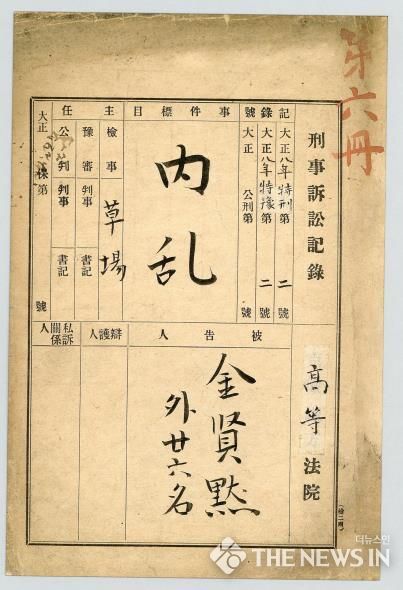 第六冊
刑事訴訟記錄
高等法院
記錄號
大正八年特刑第二號
大正八年特豫第二號
大正 公刑第 號
事件標目
內乱
主任
檢事 草場
豫審判事 書記
公判判事 書記
大正 保第 號
被告人
金賢黙
外廿六名
辯護人
私訴關係人
더뉴스인
THE NEWS IN